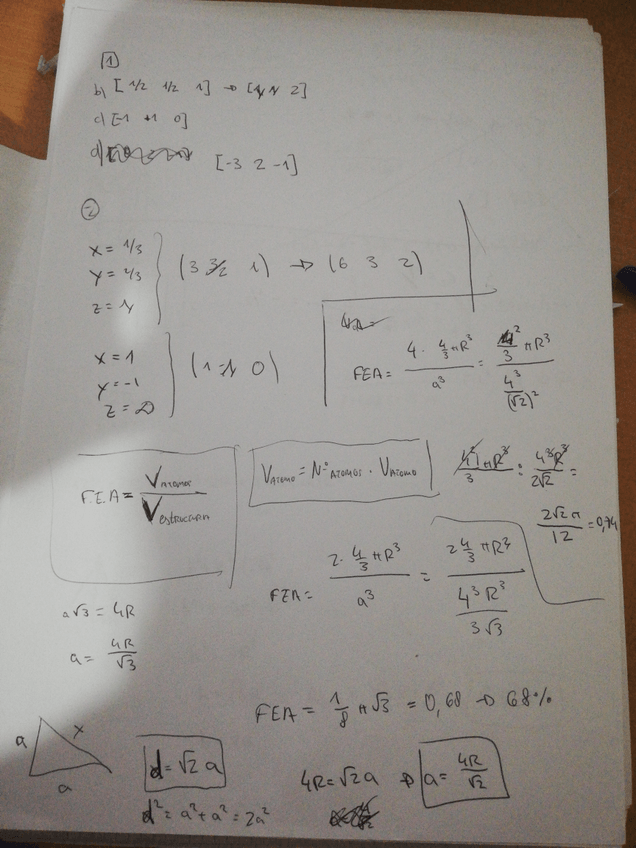 1
b) [ 1/2 1/2 1] → [1 1 2]
c) [-1 +1 0]
d) [-3 2 -1]
2
x = 1/3
y = 2/3
z = 1
(3 3/2 1) → (6 3 2)
x = 1
y = -1
z = ∞
(1 -1 0)
FEA = 4 · 4/3 π R³ / a³ = 4²/3 π R³ / 4³/(√2)²
F.E.A = V ATOMOS / V ESTRUCTURA
V ATOMO = Nº ATOMOS · V ATOMO
4² π R³ / 3 : 4³ R³ / 2√2 =
2√2 π / 12 = 0,74
FEA = 2 · 4/3 π R³ / a³ = 2 4/3 π R³ / 4³ R³ / 3√3
a√3 = 4R
a = 4R / √3
FEA = 1/8 π √3 = 0,68 → 68%
a
x
a
d = √2 a
d² = a² + a² = 2a²
4R = √2 a ⇒ a = 4R / √2